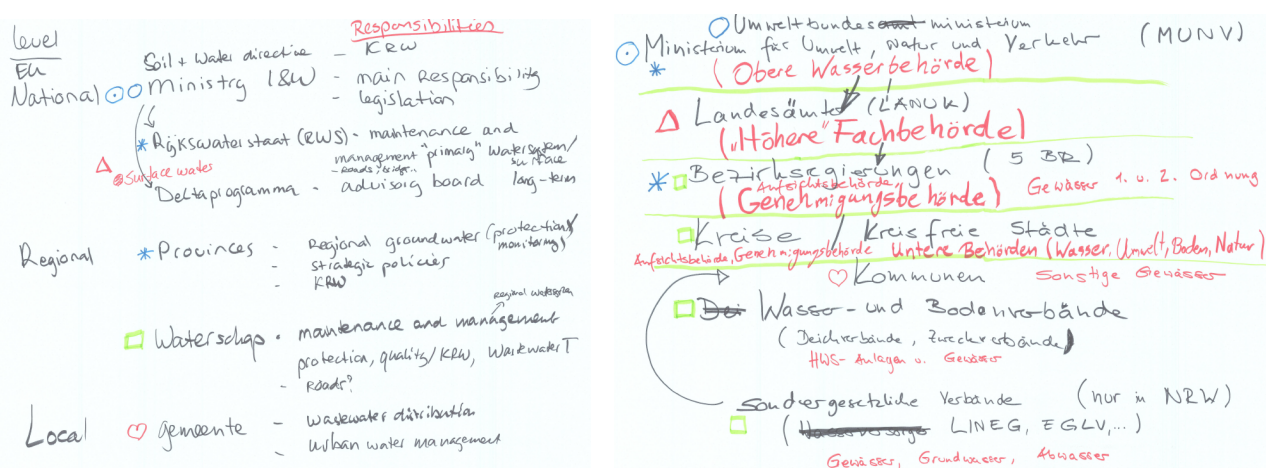 Level
Responsibilities
EU
Soil + Water directive - KRW
National Ministry I&W - main Responsibility
- legislation
Rijkswaterstaat (RWS) - maintenance and
management "primary" watersystem/
surface
- Roads, bridge..
Surface water
Deltaprogramma - advisory board long-term
Regional Provinces - Regional groundwater (protection/
monitoring)
- strategic policies
- KRW
Regional watersystem
Waterschap - maintenance and management
protection, quality/KRW, WastewaterT
- Roads?
Local gemeente - wastewater distribution
- urban water management
Umweltbundesamt ministerium
Ministerium für Umwelt, Natur und Verkehr (MUNV)
(Obere Wasserbehörde)
Landesämter (LANUK)
("Höhere" Fachbehörde)
Bezirksregierungen (5 BR)
Aufsichtsbehörde
(Genehmigungsbehörde) Gewässer 1. u. 2. Ordnung
Kreise / Kreisfreie Städte
Aufsichtsbehörde, Genehmigungsbehörde Untere Behörden (Wasser, Umwelt, Boden, Natur)
Kommunen Sonstige Gewässer
Dei Wasser- und Bodenverbände
(Deichverbände, Zweckverbände)
HWS-Anlagen u. Gewässer
sondergesetzliche Verbände (nur in NRW)
(Wasserversorge LINEG, EGLV,...)
Gewässer, Grundwasser, Abwasser